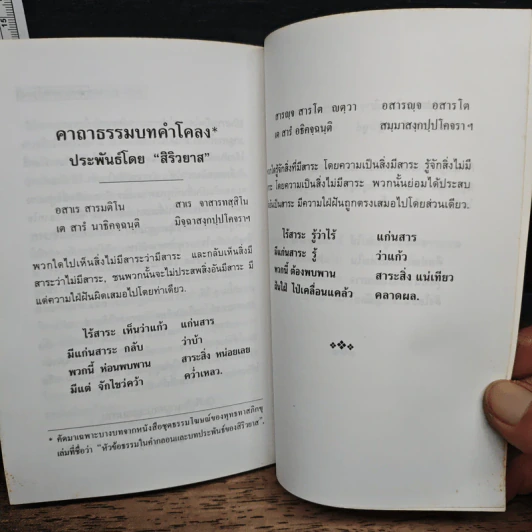 คาถาธรรมบทคำโคลง*
ประพันธ์โดย “สิริวยาส”
อสาเร สารมติโน สาเร จาสารทสฺสิโน
เต สารํ นาธิคจฺฉนฺติ มิจฺฉาสงฺกปฺปโคจราฯ
พวกใดไปเห็นสิ่งไม่มีสาระว่ามีสาระ และกลับเห็นสิ่งมี
สาระว่าไม่มีสาระ, ชนพวกนั้นจะไม่ประสพสิ่งอันมีสาระ มี
แต่ความใฝ่ฝันผิดเสมอไปโดยท่าเดียว.
ไร้สาระ เห็นว่าแก้ว แก่นสาร
มีแก่นสาระ กลับ ว่าบ้า
พวกนี้ ห่อนพบพาน สาระสิ่ง หน่อยเลย
มีแต่ จักไขว่คว้า คว่ำเหลว.
* คัดมาเฉพาะบางบทจากหนังสือชุดธรรมโฆษณ์ของพุทธทาสภิกขุ
เล่มที่ชื่อว่า “หัวข้อธรรมในคำกลอนและบทประพันธ์ของสิริวยาส”.
สารญฺจ สารโต ญตฺวา อสารญฺจ อสารโต
เต สารํ อธิคจฺฉนฺติ สมฺมาสงฺกปฺปโคจราฯ
รู้จักสิ่งที่มีสาระ โดยความเป็นสิ่งมีสาระ รู้จักสิ่งไม่มี
สาระ โดยความเป็นสิ่งไม่มีสาระ พวกนั้นย่อมได้ประสบ
เป็นสาระ มีความใฝ่ฝันถูกตรงเสมอไปโดยส่วนเดียว.
ไร้สาระ รู้ว่าไร้ แก่นสาร
มีแก่นสาระ รู้ ว่าแก้ว
พวกนี้ ต้องพบพาน สาระสิ่ง แน่เทียว
ใฝ่ ไป่เคลื่อนแคล้ว คลาดผล.